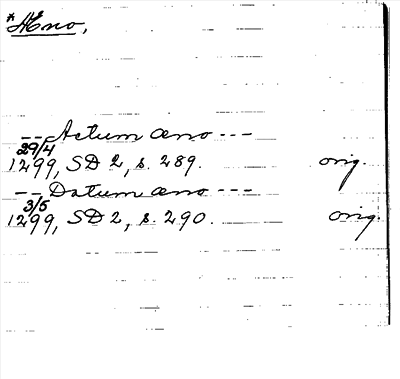 *Æno,
-- Actum æno ---
29/4
1299, SD 2, s. 289. orig.
-- Datum æno ---
3/5
1299, SD 2, s. 290. orig.